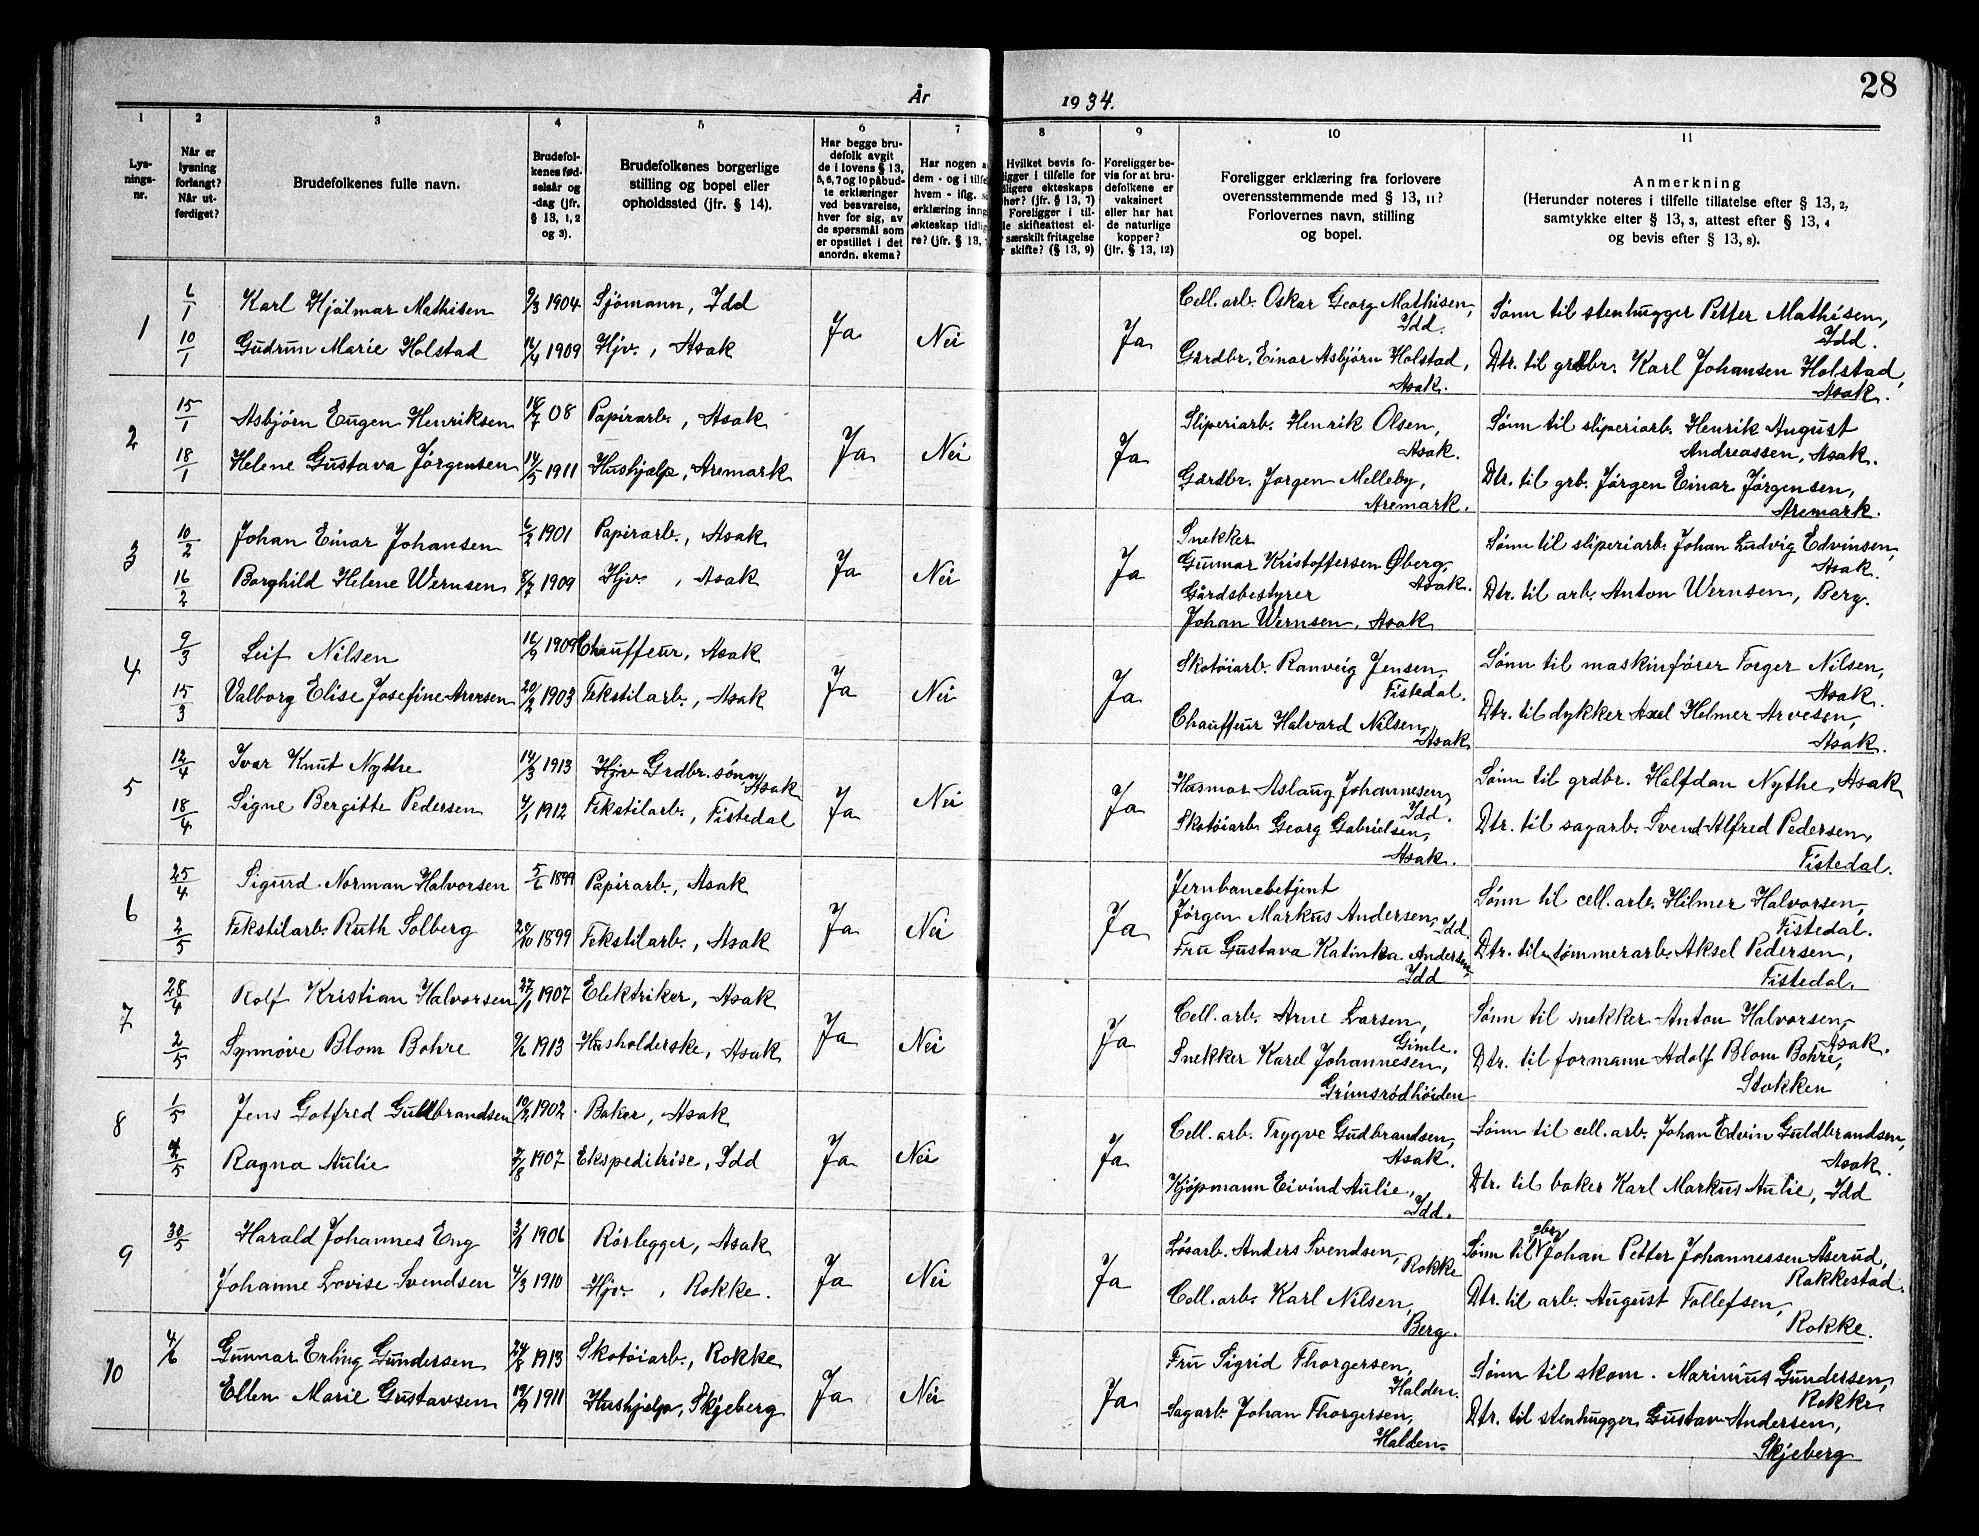 28
År 1934.
1 2 3 4 5 6 7 8 9 10 11
Lysningsnr.
Når er lysning forlangt? Når utferdiget?
Brudefolkenes fulle navn.
Brudefolkenes fødselsår og -dag (jfr. § 13, 1, 2 og 3).
Brudefolkenes borgerlige stilling og bopel eller opholdssted (jfr. § 14).
Har begge brudefolk avgit de i lovens § 13, 5, 6, 7 og 10 påbudte erklæringer ved besvarelse, hver for sig, av de spørsmål som er opstillet i det anordn. skema?
Har nogen a
dem - og i tilfe
hvem - iflg. s
erklæring inng
ekteskap tidlig
re? (jfr. § 13,
Hvilket bevis fo-
ligger i tilfelle for
dligere ekteskaps
her? (jfr. § 13, 7)
Foreligger i til-
le skifteattest el-
r særskilt fritagelse
r skifte? (§ 13, 9)
Foreligger bevis for at brudefolkene er vaksinert eller har hat de naturlige kopper? (jfr. § 13, 12)
Foreligger erklæring fra forlovere overensstemmende med § 13, 11? Forlovernes navn, stilling og bopel.
Anmerkning
(Herunder noteres i tilfelle tillatelse efter § 13, 2, samtykke efter § 13, 3, attest efter § 13, 4 og bevis efter § 13, 8).
1 6/1 Karl Hjalmar Mathisen 9/3 1904 Sjömann, Idd Ja Nei Ja Cell. arb. Oskar Georg Mathisen, Idd. Sønn til stenhugger Petter Mathisen, Idd.
10/1 Gudrun Marie Holstad 1909 Hjv., Asak Gårdbr. Einar Asbjörn Holstad, Asak. Dtr. til grdbr. Karl Johansen Holstad, Asak.
2 15/1 Asbjörn Eugen Henriksen 08 Papirarb., Asak Ja Nei Ja Sliperiarb. Henrik Olsen, Asak. Sønn til sliperiarb. Henrik August Andreassen, Asak.
18/1 Helene Gustava Jörgensen 14/5 1911 Hushjelp, Aremark Gårdbr. Jørgen Melleby, Aremark. Dtr. til grb. Jørgen Einar Jørgensen, Aremark.
3 10/2 Johan Einar Johansen 6/2 1901 Papirarb., Asak Ja Nei Ja Snekker Gunnar Kristoffersen Øberg, Asak. Sønn til sliperiarb. Johan Ludvig Edvinsen, Asak.
16/2 Borghild Helene Wernsen 1909 Hjv., Asak Gårdsbestyrer Johan Wernsen, Asak Dtr. til arb. Anton Wernsen, Berg.
4 9/3 Leif Nilsen 1909 Chauffeur, Asak Ja Nei Ja Skotöiarb. Ranveig Jensen, Tistedal. Sønn til maskinfører Torger Nilsen, Asak.
15/3 Valborg Elise Josefine Arvesen 20/2 1903 Tekstilarb., Asak Chauffeur Halvard Nilsen, Asak Dtr. til dykker Axel Helmer Arvesen, Asak.
5 12/4 Ivar Knut Nythe 14/3 1913 Hjv Grdbr. sønn, Asak Ja Nei Ja Husmor Aslaug Johannesen, Idd. Sønn til grdbr. Halfdan Nythe, Asak
18/4 Signe Bergitte Pedersen 4/1 1912 Tekstilarb., Tistedal Skotöiarb. Georg Gabrielsen, Asak. Dtr. til sagarb. Svend Alfred Pedersen, Tistedal.
6 25/4 Sigurd Norman Halvorsen 5/6 1899 Papirarb., Asak Ja Nei Ja Jernbanebetjent Jørgen Markus Andersen, Idd. Sønn til cell. arb. Hilmer Halvorsen, Tistedal.
2/5 Tekstilarb. Ruth Solberg 1899 Tekstilarb., Asak Fru Gustava Katinka Andersen, Idd Dtr. til tømmerarb. Aksel Pedersen, Tistedal.
7 28/4 Rolf Kristian Halvorsen 1907 Elektriker, Asak Ja Nei Ja Cell. arb. Arne Larsen, Gimle. Sønn til snekker Anton Halvorsen, Asak.
2/5 Synnøve Blom Bohre 1913 Husholderske, Asak Snekker Karel Johannesen, Grimsrödhöiden Dtr. til formann Adolf Blom Bohre, Stokken
8 1/5 Jens Gotfred Gulbrandsen 1902 Baker, Asak Ja Nei Ja Cell. arb. Trygve Gudbrandsen, Asak. Sønn til cell. arb. Johan Edvin Guldbrandsen, Asak.
2/5 Ragna Aulie 7/8 1907 Ekspeditrise, Idd Kjøpmann Eivind Aulie, Idd. Dtr. til baker Karl Markus Aulie, Idd
9 30/5 Harald Johannes Eng 1906 Rörlegger, Asak Ja Nei Ja Løsarb. Anders Svendsen, Rokke Sønn til gbr. Johan Petter Johannessen Åserud, Rakkestad.
Johanne Lovise Svendsen 4/3 1910 Hjv., Rokke. Cell. arb. Karl Nilsen, Berg. Dtr. til arb. August Tollefsen, Rokke.
10 4/6 Gunnar Erling Gundersen 24/8 1913 Skotöiarb., Rokke Ja Nei Ja Fru Sigrid Thorgersen, Halden. Sønn til skom. Marinius Gundersen, Rokke
Ellen Marie Gustavsen 1911 Hushjelp, Skjeberg Sagarb. Johan Thorgersen, Halden. Dtr. til stenhugger Gustav Andersen, Skjeberg